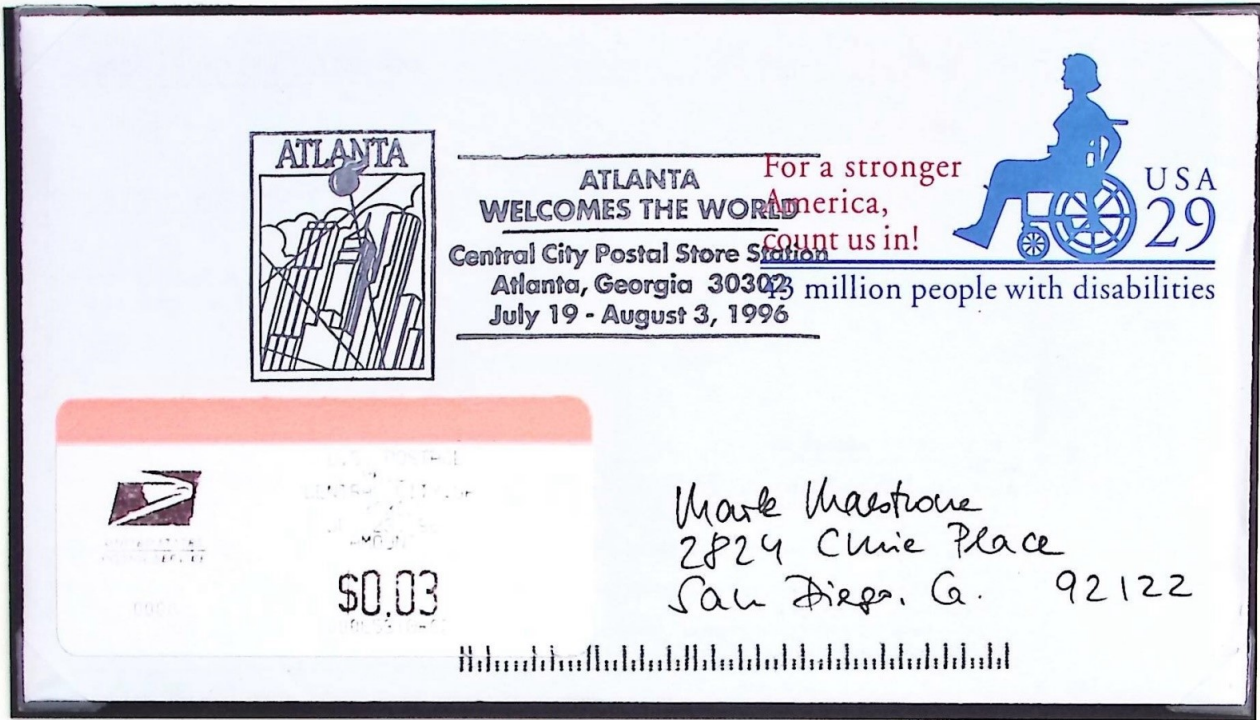 ATLANTA
ATLANTA
WELCOMES THE WORLD
Central City Postal Store Station
Atlanta, Georgia 30302
July 19 - August 3, 1996
For a stronger
America,
count us in!
USA
29
43 million people with disabilities
$0.03
Mark Maestrone
2824 Curie Place
San Diego, Ca. 92122